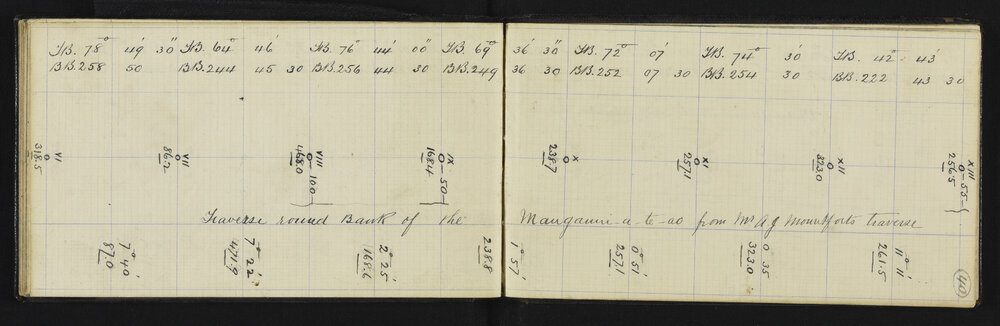 FB. 78° 49' 30" FB. 64° 46' FB. 76° 44' 00" FB. 69° 36' 30" FB. 72° 07' FB. 74° 30' FB. 42° 43'
BB. 258 50 BB. 244 45 30 BB. 256 44 30 BB. 249 36 30 BB. 252 07 30 BB. 254 30 BB. 222 43 30
VI
318.5
VII
86.2
VIII
468.0 - 100
IX
168.4 - 50
X
238.7
XI
257.1
XII
323.0
XIII
256.5 - 55
Traverse round Bank of the Manganui-a-te-ao from Mr A J Mountforts traverse
7° 40'
87.0
7° 22'
471.9
2° 25'
168.6
1° 57'
238.8
0° 51'
257.1
0 35
323.0
11° 11'
261.5
40